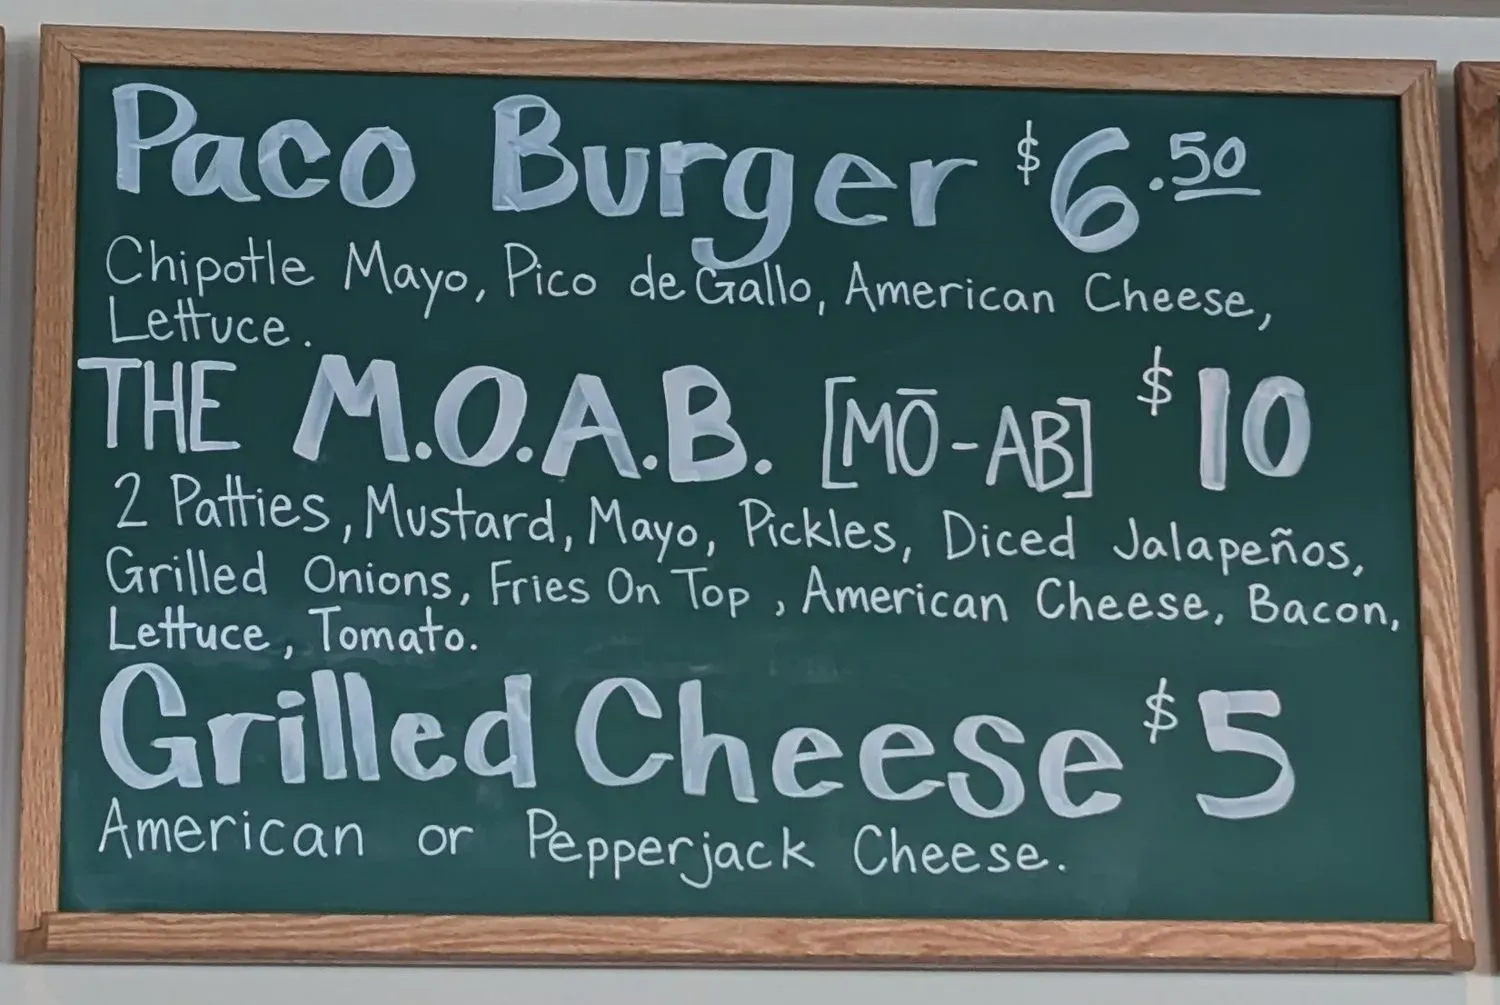 Paco Burger $6.50
Chipotle Mayo, Pico de Gallo, American Cheese,
Lettuce.
THE M.O.A.B. [MŌ-AB] $10
2 Patties, Mustard, Mayo, Pickles, Diced Jalapeños,
Grilled Onions, Fries On Top, American Cheese, Bacon,
Lettuce, Tomato.
Grilled Cheese $5
American or Pepperjack Cheese.